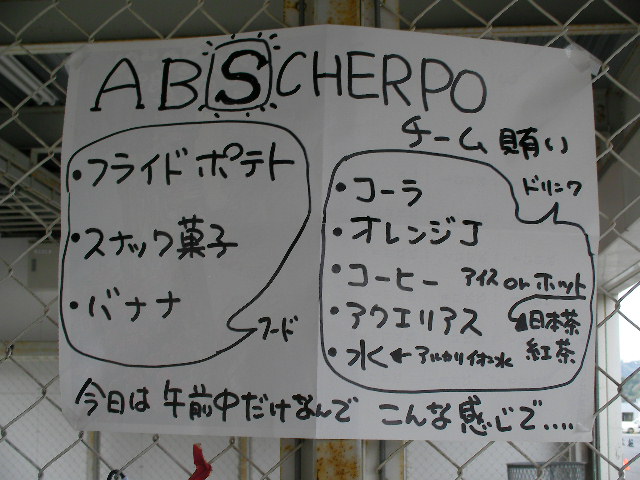 ABSCHERPO
チーム 賄い
・フライドポテト
・スナック菓子
・バナナ
フード
ドリンク
・コーラ
・オレンジJ
・コーヒー アイス or ホット
・アクエリアス 日本茶
・水 ← アルカリイオン水 紅茶
今日は午前中だけなんで こんな感じで....